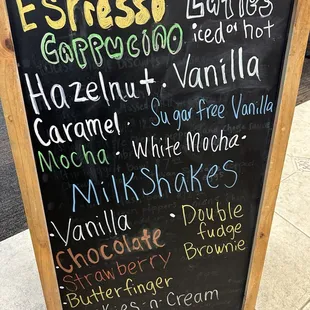 Espresso Lattes
Cappucino iced or hot
Hazelnut · Vanilla
Caramel · Sugar free Vanilla
Mocha · White Mocha ·
Milkshakes
· Vanilla
· Double
fudge
Brownie
· Chocolate
· Strawberry
· Butterfinger
kies-n-Cream